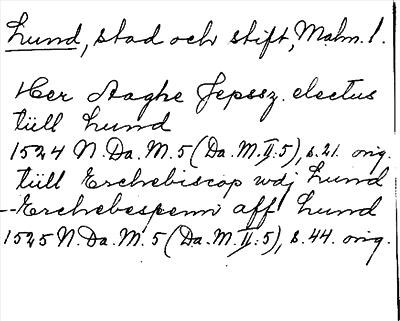 Lund, stad och stift, Malm. l.
Her Aaghe Jepssz. electus
tüll Lund
1524 N. Da. M. 5 (Da. M. II:5), s. 21. orig.
tüll Erchebiscop wdj Lund
--Erchebespenn aff Lund
1525 N. Da. M. 5 (Da. M. II:5), s. 44. orig.